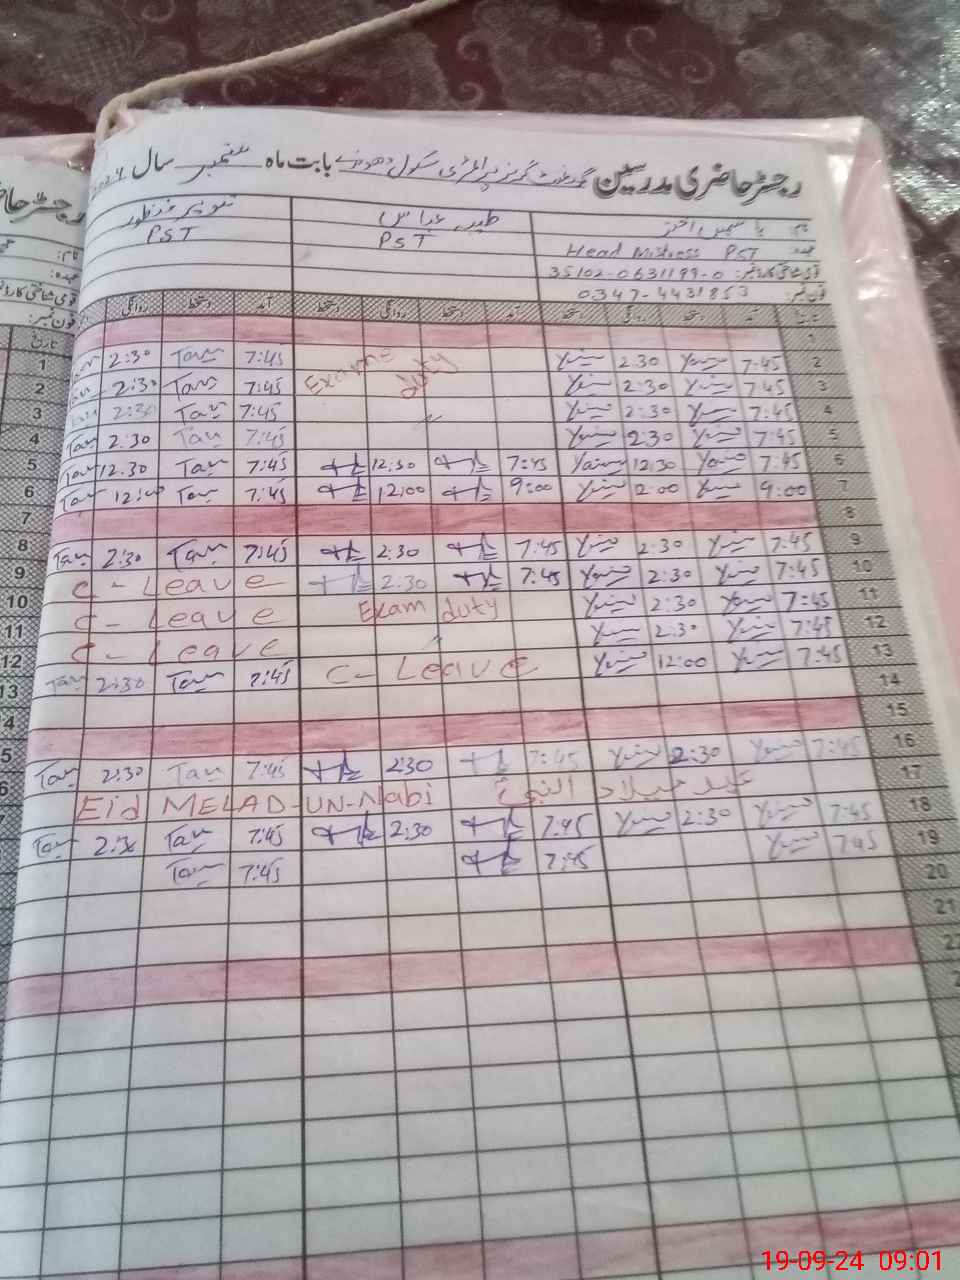 رجسٹر حاضری مدرسین گورنمنٹ گرلز پرائمری سکول بابت ماہ ستمبر سال
نام: یاسمین اختر طیبہ عباس تنویر منظور
عہدہ: Head Mistress PST PST PST
قومی شناختی کارڈ نمبر: 35102-0631199-0
فون نمبر: 0347-4431853
تاریخ آمد دستخط روانگی دستخط آمد دستخط روانگی دستخط آمد دستخط روانگی
1
2:30 Tan 7:45 Exame duty 2:30 7:45 2
2:30 Tan 7:45 2:30 7:45 3
2:30 Tan 7:45 2:30 7:45 4
Tan 2:30 Tan 7:45 2:30 7:45 5
Tan 12:30 Tan 7:45 12:30 7:45 12:30 7:45 6
Tan 12:00 Tan 7:45 12:00 9:00 12:00 9:00 7
8
Tan 2:30 Tan 7:45 2:30 7:45 2:30 7:45 9
C-Leave 2:30 7:45 2:30 7:45 10
C-Leave Exam duty 2:30 7:45 11
C-Leave 2:30 7:45 12
Tan 2:30 Tan 7:45 C-Leave 12:00 7:45 13
14
15
Tan 2:30 Tan 7:45 2:30 7:45 2:30 7:45 16
Eid MELAD-UN-Nabi عید میلاد النبیؐ 17
Tan 2:30 Tan 7:45 2:30 7:45 2:30 7:45 18
Tan 7:45 7:45 7:45 19
20
21
22
رجسٹر حاضری
نام:
عہدہ:
قومی شناختی کارڈ
فون نمبر:
تاریخ
1
2
3
4
5
6
7
8
9
10
11
12
13
19-09-24 09:01